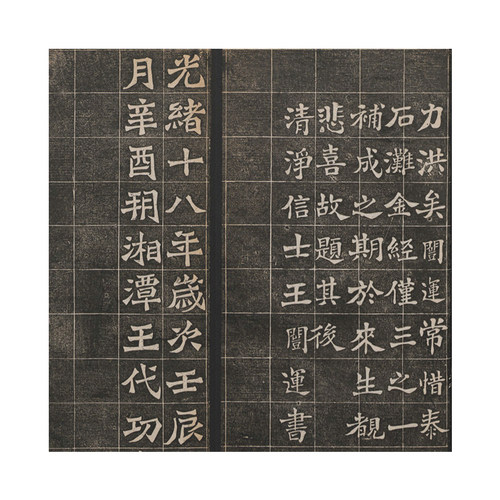 力洪矣闓運常惜泰
石灘金經僅三之一
補成之期於來生覩
悲喜故題其後
清淨信士王闓運書
光緒十八年歲次壬辰
月辛酉朔湘潭王代功